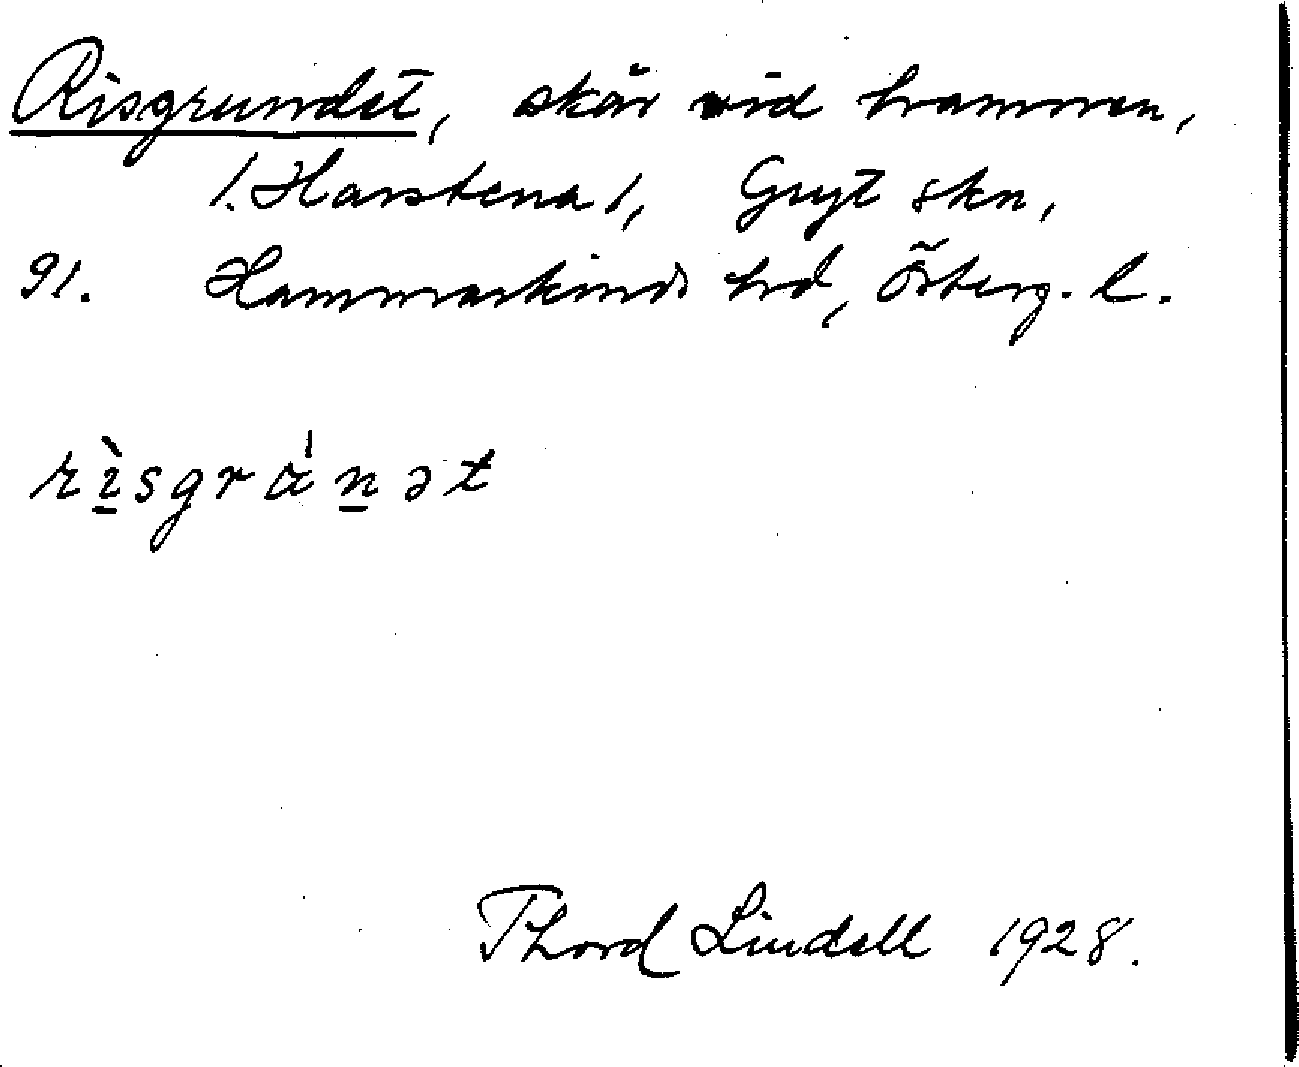 Risgrundet, skär vid hamnen,
1. Harstena 1, Gryt skn,
91. Hammarkinds hd, Österg. l.
rìsgránət
Thord Lindell 1928.